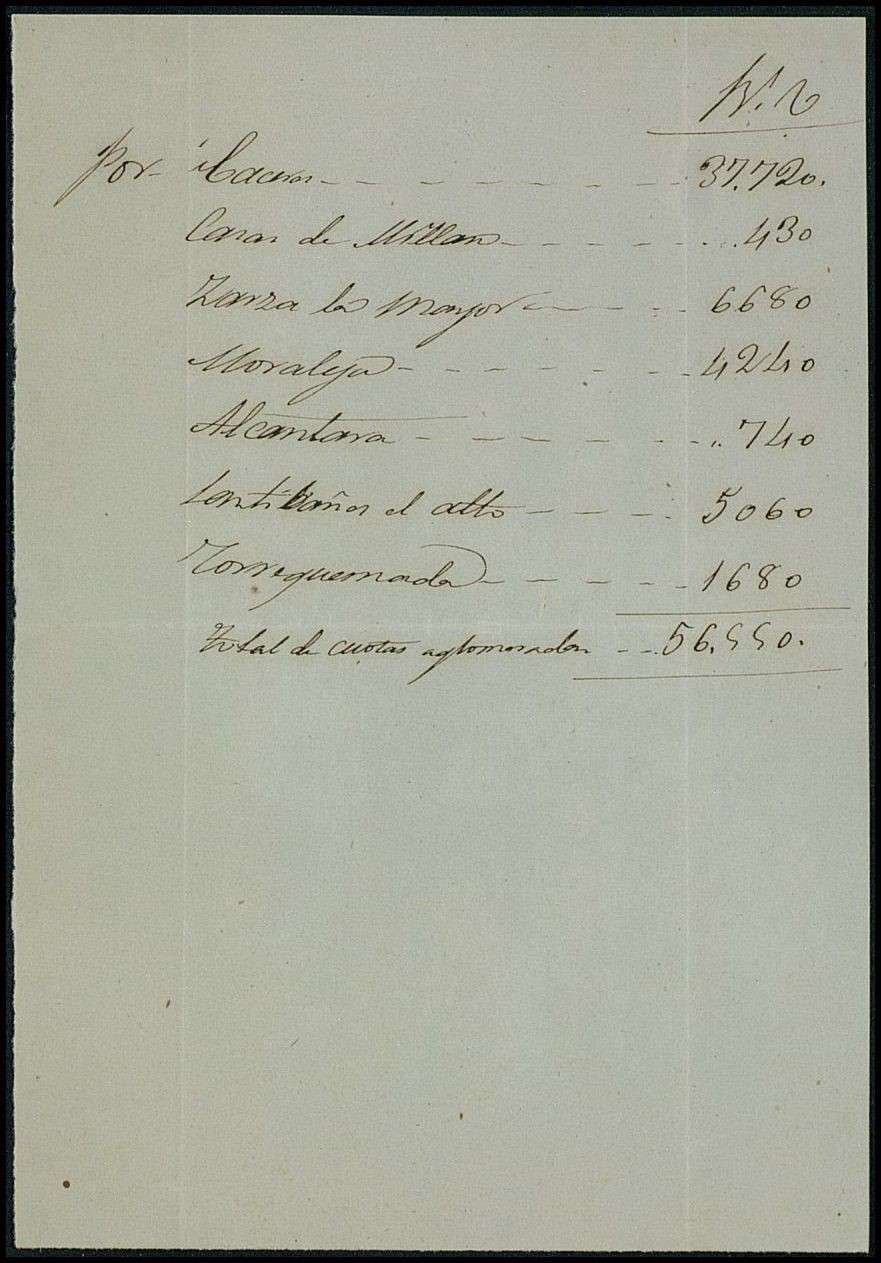 Por Caceres 37.720.
Casas de Millan 430
Zarza la Mayor 6680
Moraleja 4240
Alcantara 740
Santibañes el alto 5060
Torrequemada 1680
Total de cuotas aglomeradas 56.550.